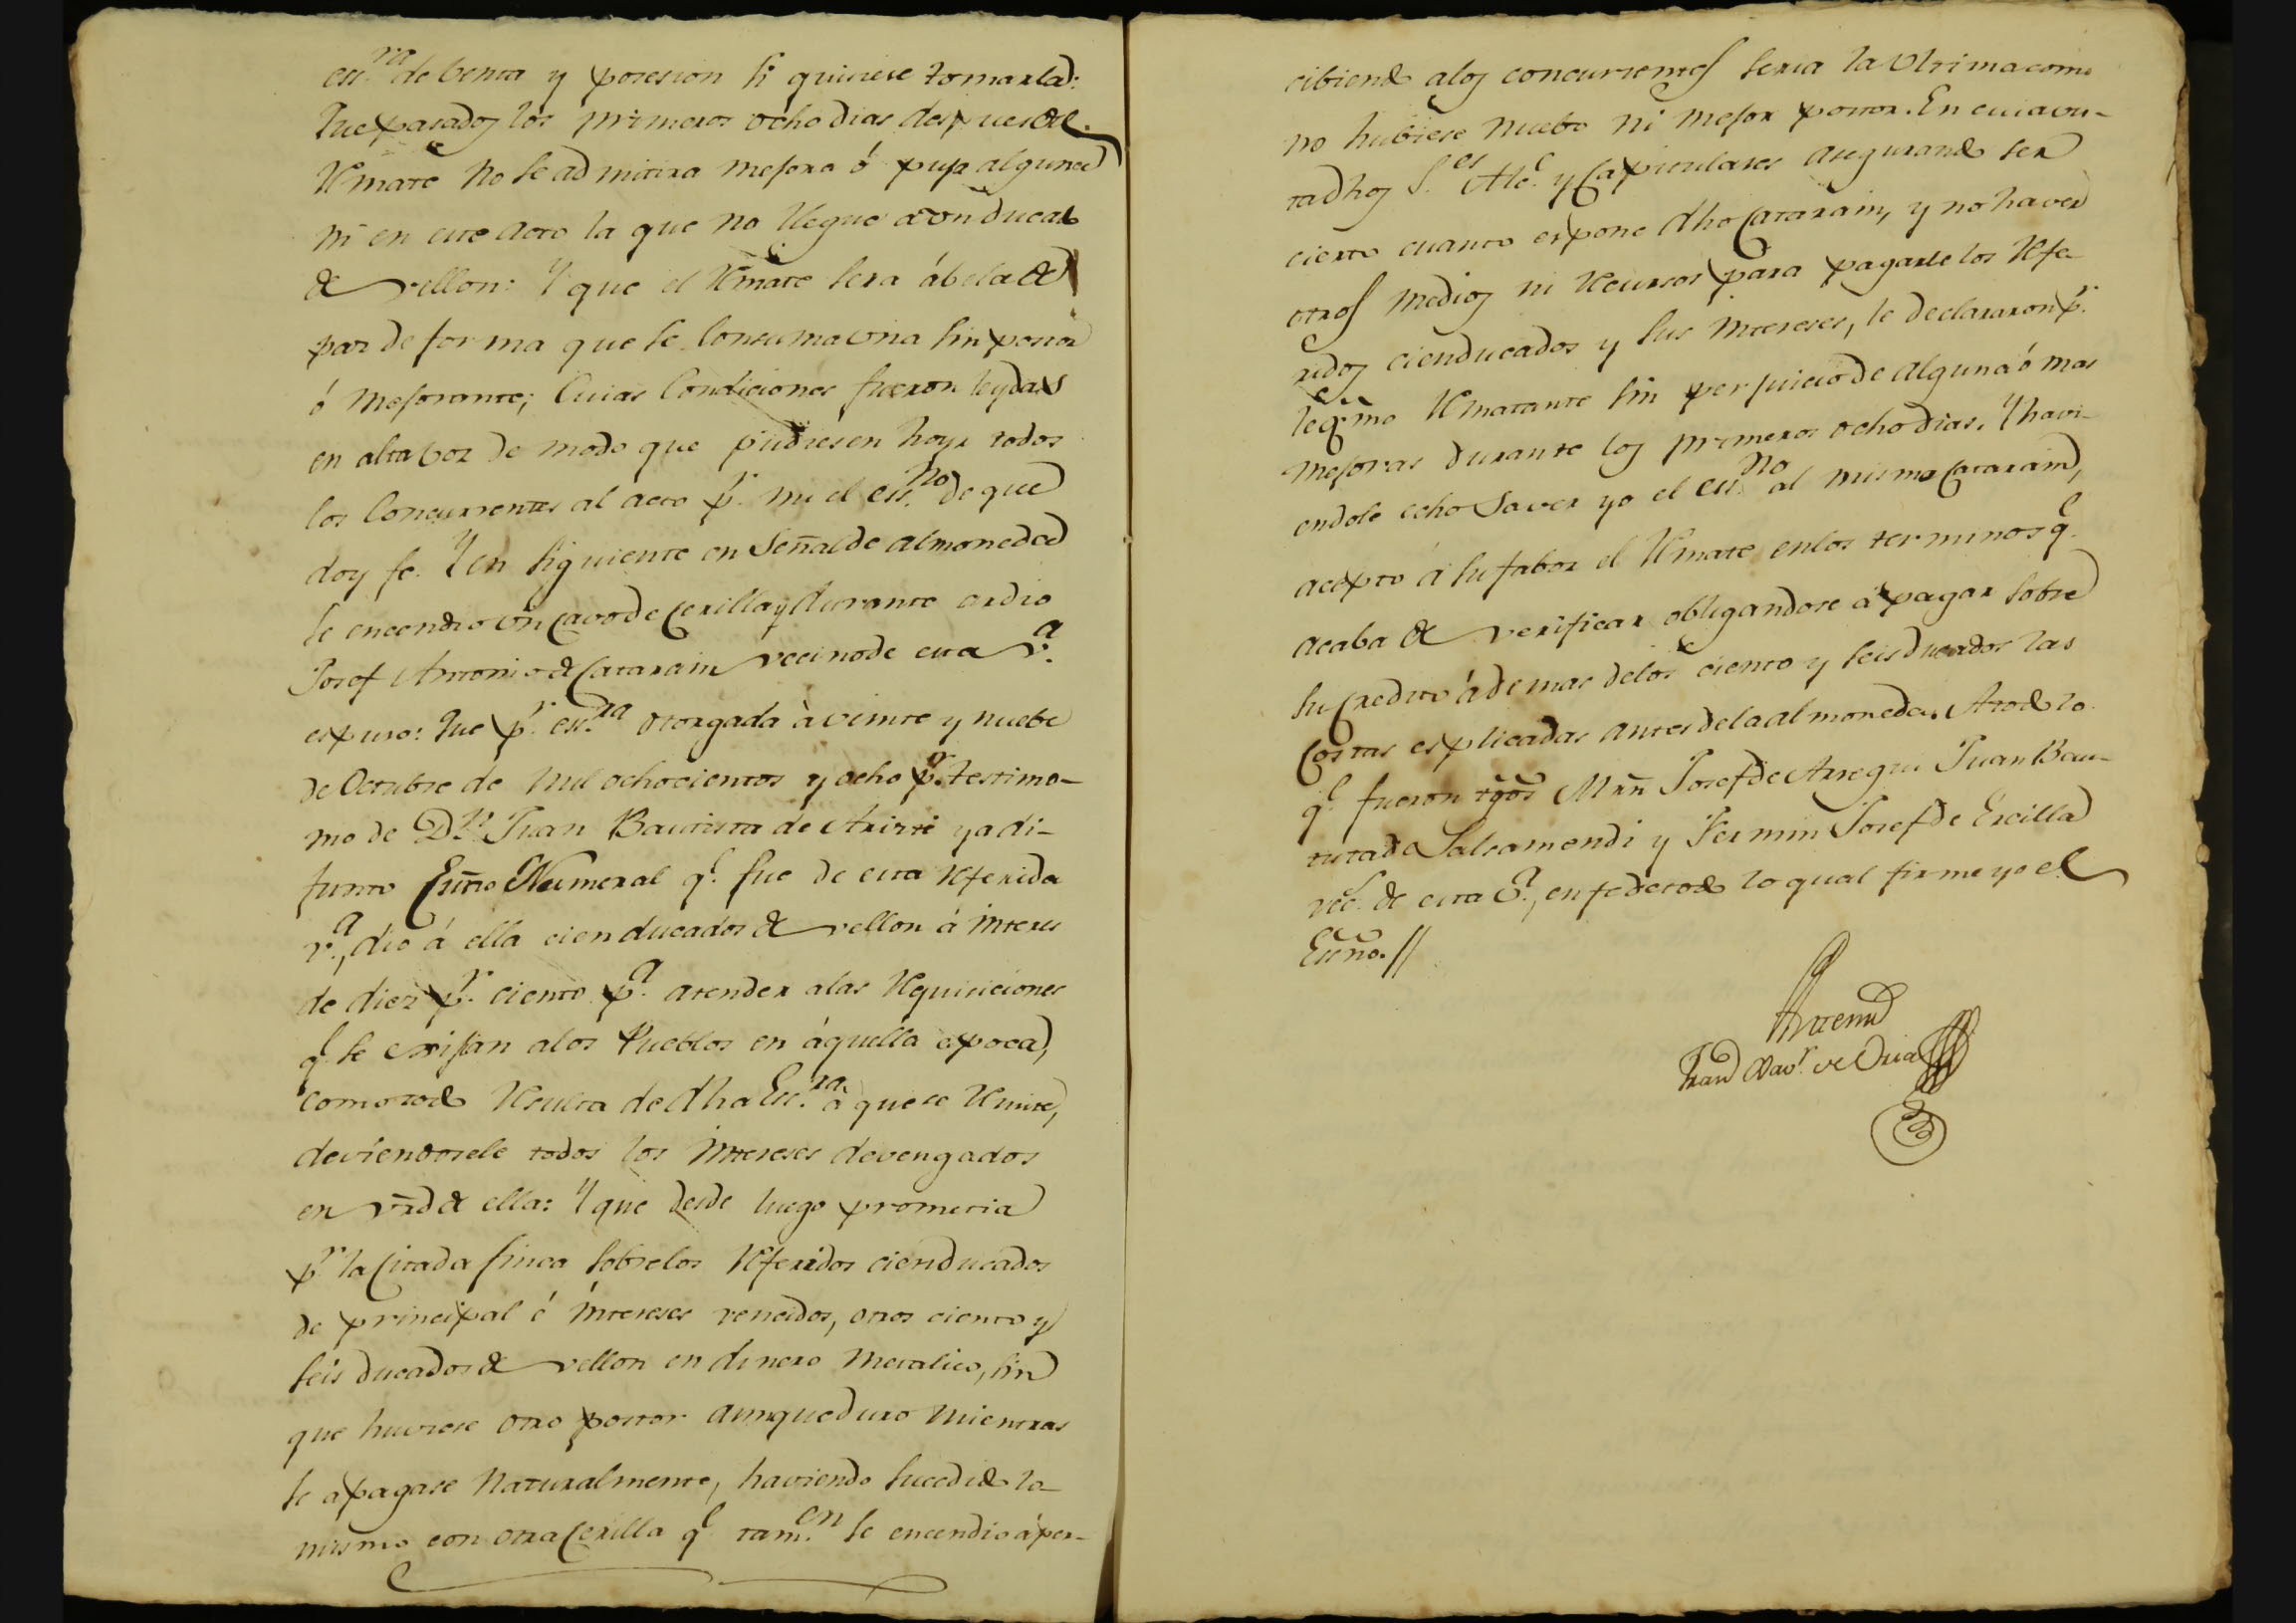 escrra de benta y posesion si quisiese tomarla:
Que pasados los primeros ocho dias despues del
Rmate no se admitira mejora ó puja alguna
ni en este acto la que no llegue a un ducado
de vellon: Y que el Rmate sera ábela de
par de forma que se consuma una sin postor
ó mejorante; Cuias Condiciones fueron leydas
en alta boz de modo que pudiesen hoyr todos
los Concurrentes al acto pr. mi el essno. de que
doy fe. Y en siguiente en Señal de almoneda
se encendio un cavo de Cerilla y durante ardio
Josef Antonio de Catarain vecino de esta va.
espuso: Que pr. essra otorgada à veinte y nuebe
de Octubre de mil ochocientos y ocho pr. testimo-
nio de Dn. Juan Bautista de Arizti ya di-
funto Essno Numeral qe. fue de esta Referida
va., dio á ella cien ducados de vellon á interes
de diez pr. ciento pa. atender a las Requisiciones
qe se exijian a los Pueblos en áquella epoca,
como todo Resulta de dha Essra. à que se Rmite,
deviendosele todos los intereses devengados
en vrd de ella: Y que desde luego prometia
pr la citada finca sobre los Referidos cien ducados
de principal é intereses vencidos, otros ciento y
seis ducados de vellon en dinero metalico, sin
que huviese otro postor aunque duro mientras
se apagase naturalmente, haviendo sucedido lo
mismo con otra Cerilla qe tamen. se encendio aper-
cibiendo a los concurrentes seria la Ultima como
no hubiese nuebo ni mejor postor. En cuia vir-
tad hos Ses. Alce. y Capitulares asegurando ser
cierto cuanto espone dho Catarain, y no haver
otros medios ni Recursos para pagarle los Refe-
ridos cien ducados y sus intereses, le declararon pr.
legmo Rmatante sin perjuicio de alguna ó mas
mejoras durante los primeros ocho dias. Y havi-
endole echo Saver yo el essno. al mismo Catarain,
acepto á su fabor el Rmate en los terminos qe.
acaba de verificar obligandose á pagar sobre
su credito ádemas de los ciento y seis ducados las
Costas esplicadas antes de la almoneda. A todo lo
qe. fueron tgos Mrn Josef de Arregui Juan Bau-
tista de Salsamendi y Fermin Josef de Ercilla
vecs. de esta Va., en fe de todo lo qual firme yo el
Essno.//
Ante mi
Franco Xavr. de Oria